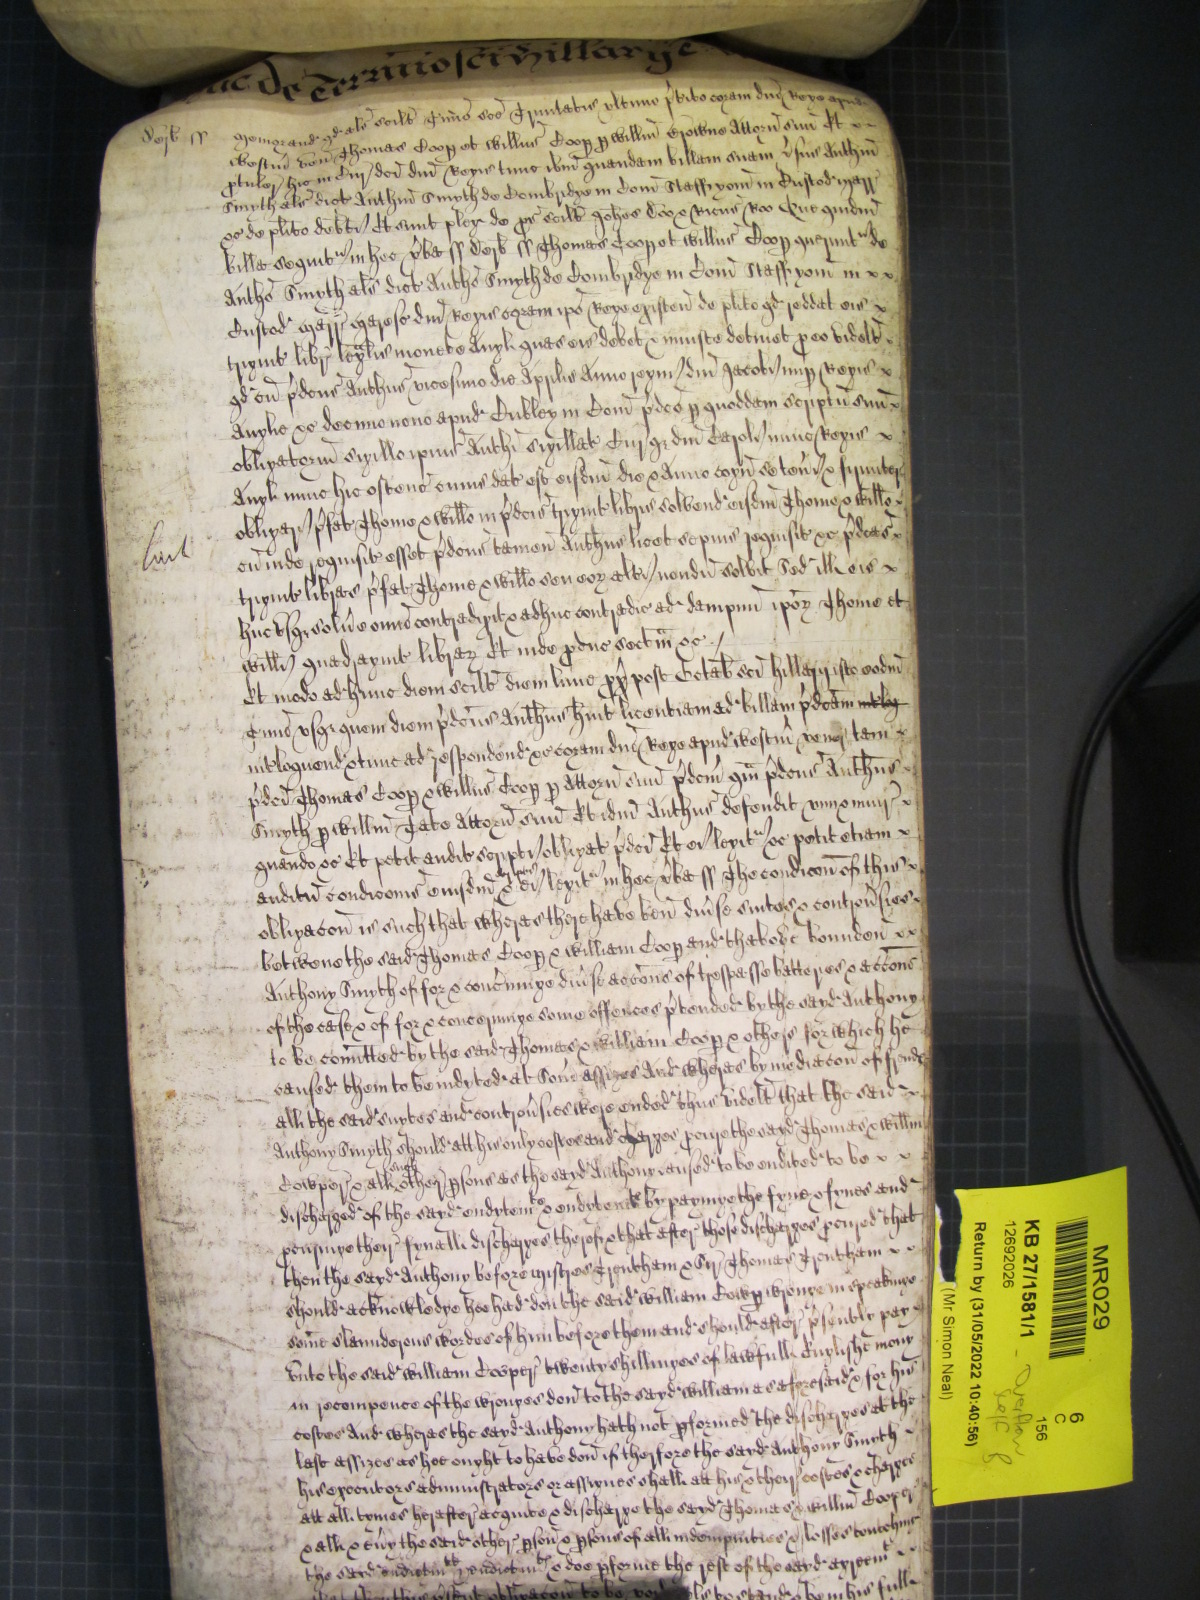 de Termino sci Hillarij
Derb ss Memorand qd als scilt Tmio sce Trinitatis ultimo pterito coram dno Rege apud
Westm ven Thomas Coop et Willms Coop p Willm Browne Attorn suu Et
ptuler hic in Cur dci dni Regis tunc ibm quandam billam suam vsus Anthm
Smyth als dict Anthm Smyth de Combridge in Com Staff yom in Custod Marr
&c de plito debti Et sunt pleg de ps scilt Johes Doo & Ricus Roo Que quidm
billa sequit in hec vba ss Derb ss Thomas Coop et Willms Coop querunt de
Antho Smyth als dict Antho Smyth de Combridge in Com Staff yom in
Custod Marr Maresc dni Regis coram ipo Rege existen de plito qd reddat eis
trigint libr legalis monete Angl quas eis debet & iniuste detinet p eo videlt
qd cu pdcus Anthus vicesimo die Aprilis Anno regni dni Jacobi nup Regis
Anglie &c decimo nono apud Cubley in Com pdco p quoddam scriptu suu
obligatoriu sigillo ipius Anthi sigillat Cur qz dni Caroli nunc Regis
Angl nunc hic ostens cuius dat est eisdm die & Anno cogn se teneri & firmiter
obligari pfat Thome & Willo in pdcis trigint libris solvend eisdm Thome & Willo
cu inde requisit esset pdcus tamen Anthus licet sepius requisit &c pdcas
trigint libras pfat Thome & Willo seu eor alti nondu solvit Sed ill eis
huc usqz solve omio contradixit & adhuc contradic ad dampnu ipor Thome et
Willi quadragint librar Et inde pduc sectam &c
Et modo ad hunc diem scilt diem lune px post Octab sci Hillarij isto eodm
Tmio usqz quem diem pdcus Anthus huit licentiam ad billam pdcam
interloquend & tunc ad respondend &c coram dno Rege apud Westm vener tam
pdci Thomas Coop & Willms Coop p Attorn suu pdcm qm pdcus Anthus
Smyth p Willm Tate Attorn suu Et idm Anthus defendit vim & iniur
quando &c Et petit audit scripti obligat pdci Et ei legit &c petit etiam
auditu condicionis eiusdm scripti & ei legit in hec vba ss The condicon of this
obligacon is such that wheras there have ben divse suites & controvsies
betwene the said Thomas Coop & William Coop and thabove bounden
Anthony Smyth of for & concninge divse accons of trespasse batteries & accons
of the case & of for & concerninge some offences ptended by the sayd Anthony
to be comitted by the said Thomas & William Coop & others for which he
caused them to be indyted at Som assizes And wheras by mediacon of frends
all the said suytes and controvsies were ended thus videlt that the said
Anthony Smyth should att his only costes and charges pcure the sayd Thomas & Willm
Cowper & all such other psons as the sayd Anthony caused to be endited to be
discharged of the sayd endytemt & endytemts by payinge the fyne & fynes and
pcuringe their fynall discharges therof & that after those discharges pcured that
then the sayd Anthony before mistres Trentham & Sir Thomas Trentham
should acknowledge hee had don the said William Cowp wronge in speakinge
some slanderous wordes of him before them and should after psently pay
unto the said William Cowper twenty shillinges of lawfull Englishe mony
in recompence of the wronges don to the sayd William as aforesaid & for his
costes And wheras the sayd Anthony hath not pformed the discharges at the
last assizes as hee ought to have don if therfore the sayd Anthony Smyth
his executors administrators or assignes shall att his & their costes & charges
att all tymes herafter acquite & discharge the sayd Thomas & Willm Cooper
& all & evy the said other pson & psons of all indempnities & losses touchinge
the sayd endictmt & endictmts & doe pforme the rest of the sayd agreemt
that then this psent obligacon to be void
MR029
6
C
156
KB 27/1581/1
12692026
Return by (31/05/2022 10:40:56)
(Mr Simon Neal)